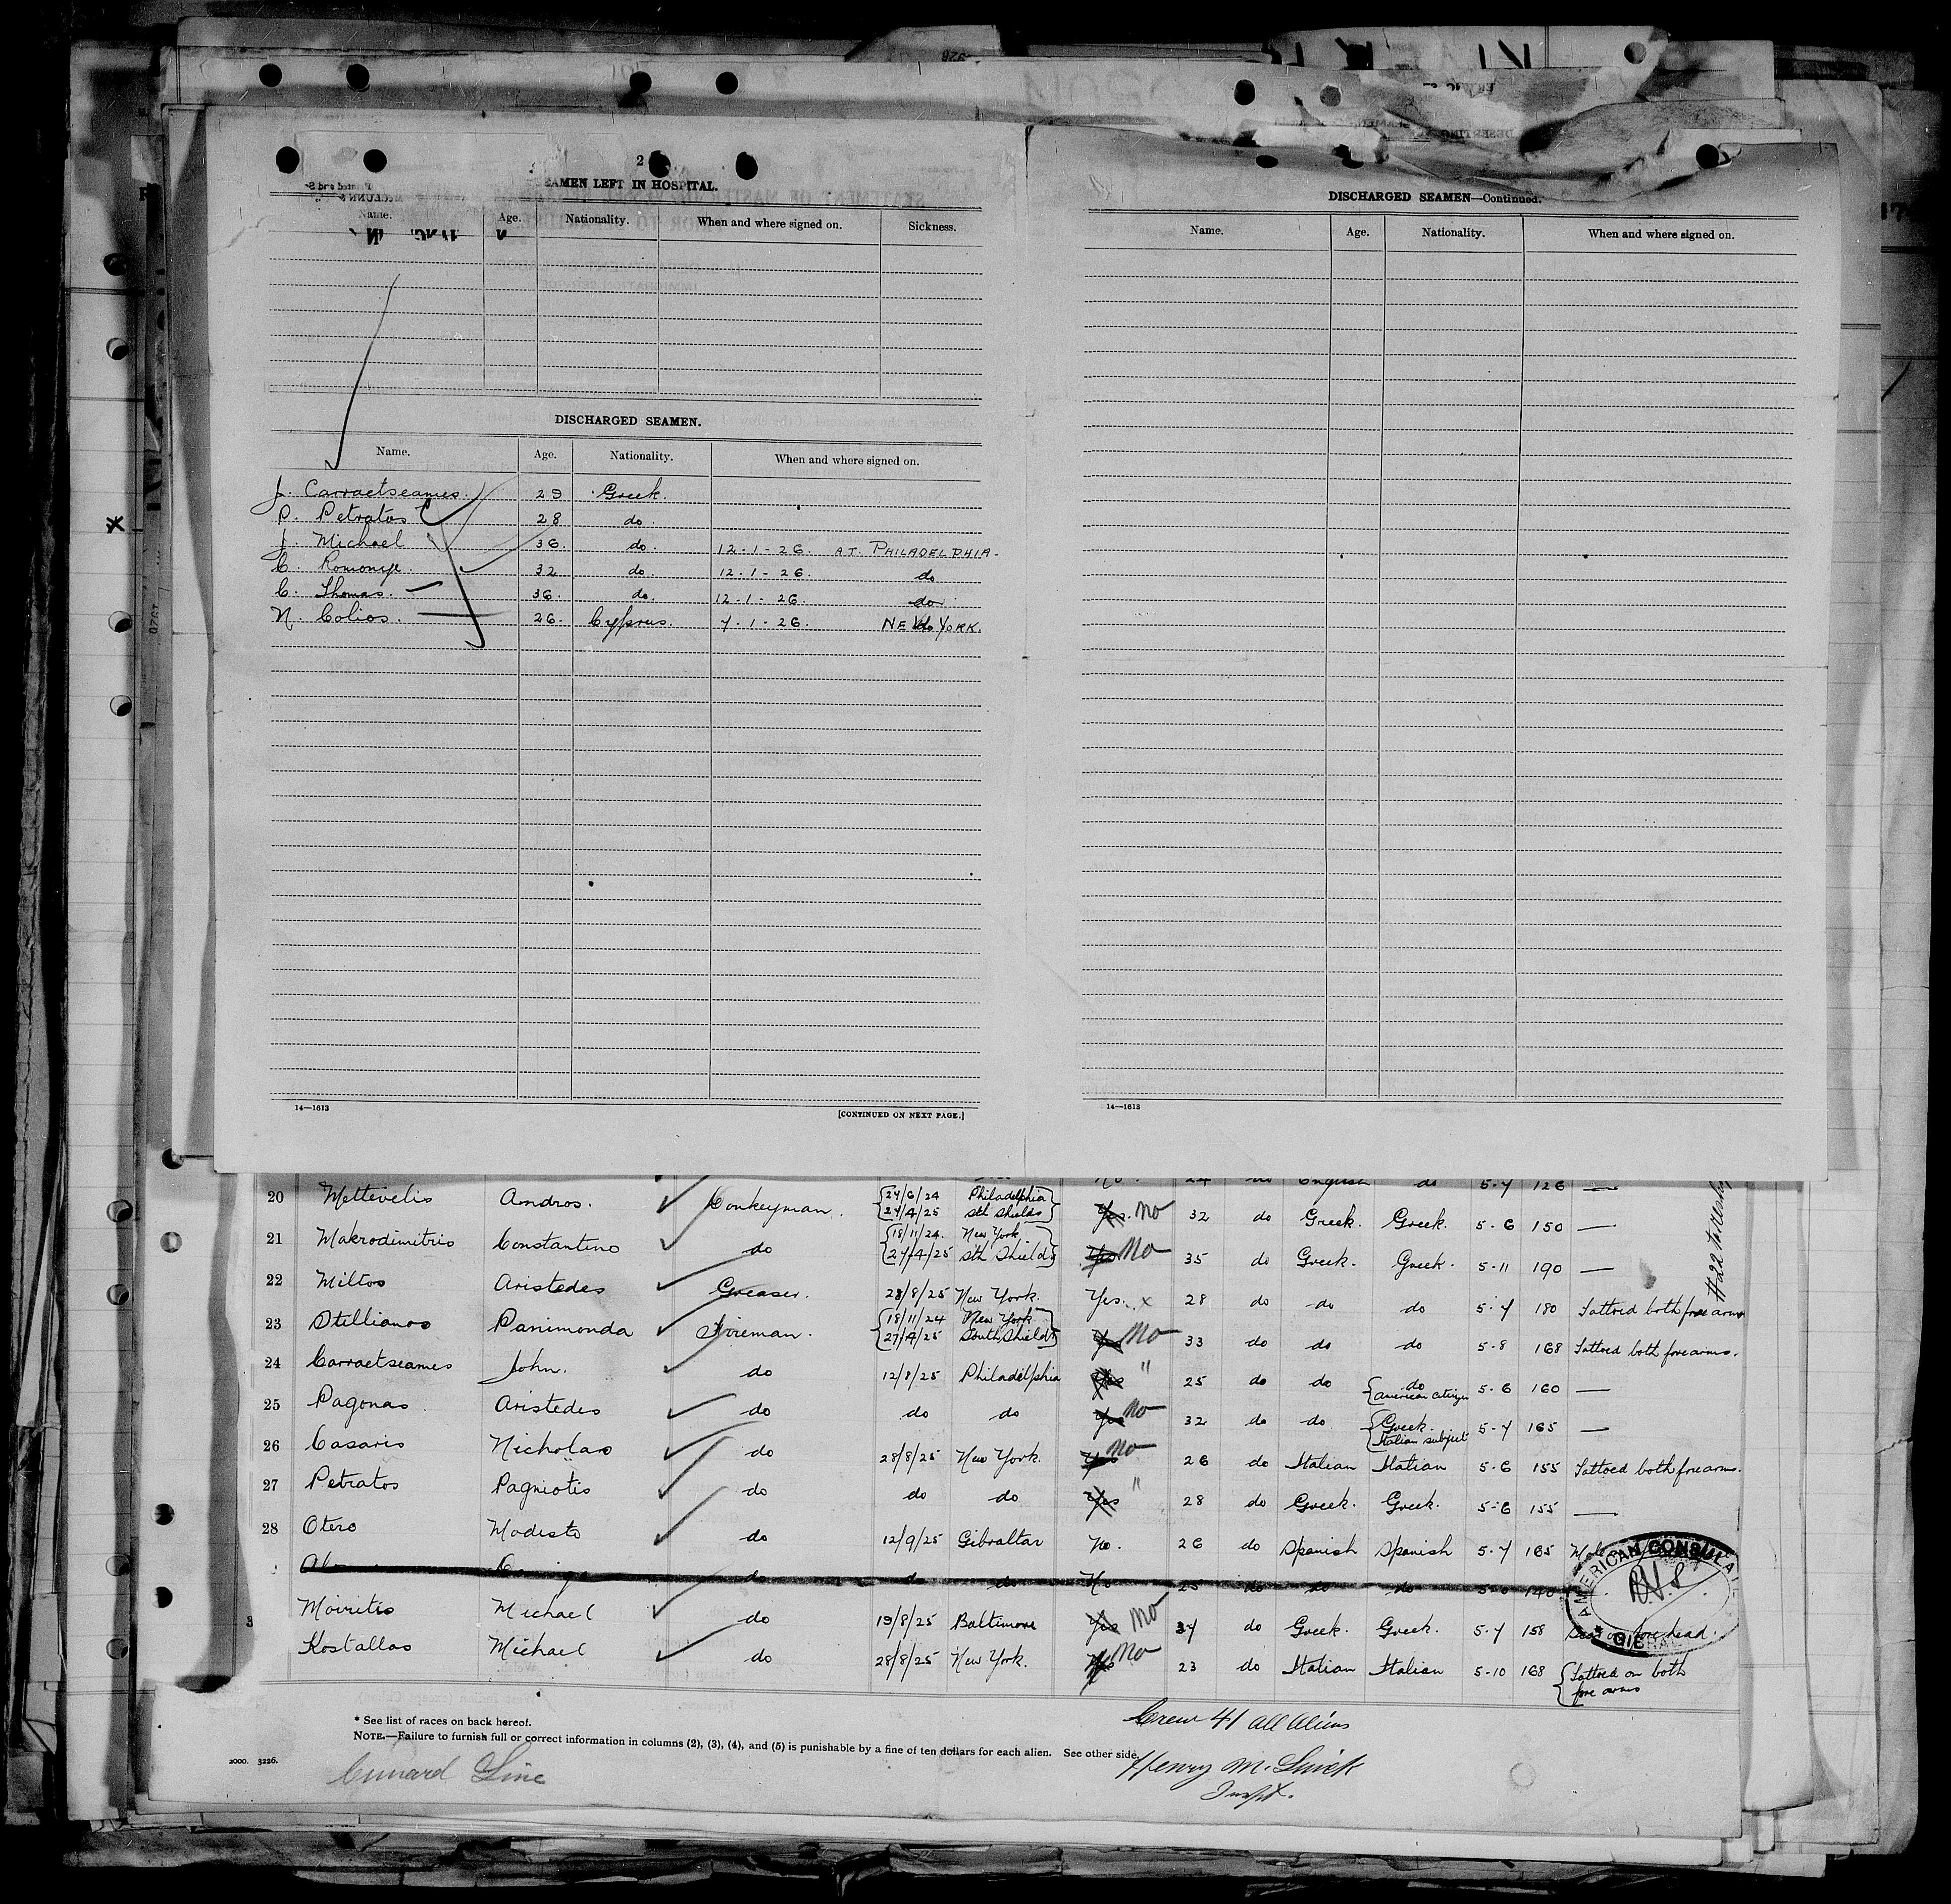 2
SEAMEN LEFT IN HOSPITAL.
Name. Age. Nationality. When and where signed on. Sickness.
DISCHARGED SEAMEN.
Name. Age. Nationality. When and where signed on.
J. Carraetseames. 29 Greek
P. Petratos 28 do.
J. Michael 36. do. 12-1-26. AT PHILADELPHIA.
C. 32 do. 12-1-26. do
C. Thomas. 36. do. 12-1-26. do
N. Colios. 26. Cyprus. 7-1-26. NEW YORK.
14—1613
[CONTINUED ON NEXT PAGE.]
DISCHARGED SEAMEN—Continued.
Name. Age. Nationality. When and where signed on.
14—1613
No. 24 do English do 5-7 126 —
20 Mettevelis Andros. Donkeyman. 24/6/24 Philadelphia 24/4/25 Sth Shields Yes. No 32 do Greek. Greek. 5-6 150 —
21 Makrodimitris Constantino do 18/11/24. New York 27/4/25 Sth Shields Yes No 35 do Greek. Greek. 5-11 190 —
22 Miltos Aristedes Greaser. 28/8/25 New York. Yes. x 28 do do do 5-7 180 Tattoed both fore arms
23 Stellianos Panimonda Fireman. 18/11/24 New York 27/4/25 South Shields Yes No 33 do do do 5-8 168 Tattoed both forearms.
24 Carraetseames John. do 12/8/25 Philadelphia Yes " 25 do do do American citizen 5-6 160 —
25 Pagonas Aristedes do do do Yes No 32 do do Greek. Italian subject 5-7 165 —
26 Casaris Nicholas do 28/8/25 New York. Yes No 26 do Italian Italian 5-6 155 Tattoed both forearms.
27 Petratos Pagniotis do do do Yes " 28 do Greek. Greek. 5-6 155 —
28 Otero Modesto do 12/9/25 Gibraltar No. 26 do Spanish Spanish 5-7 165
do do do No 25 do do do 140
3 Moiritis Michael do 19/8/25 Baltimore Yes No 37 do Greek. Greek. 5-7 158 Scar on forehead.
Kostallas Michael do 28/8/25 New York. Yes No 23 do Italian Italian 5-10 168 Tattoed on both fore arms
AMERICAN CONSULATE
GIBRAL
* See list of races on back hereof.
NOTE.—Failure to furnish full or correct information in columns (2), (3), (4), and (5) is punishable by a fine of ten dollars for each alien. See other side.
2000. 3226.
Cunard Line
Crew 41 all Aliens
Henry M.
Inspt.